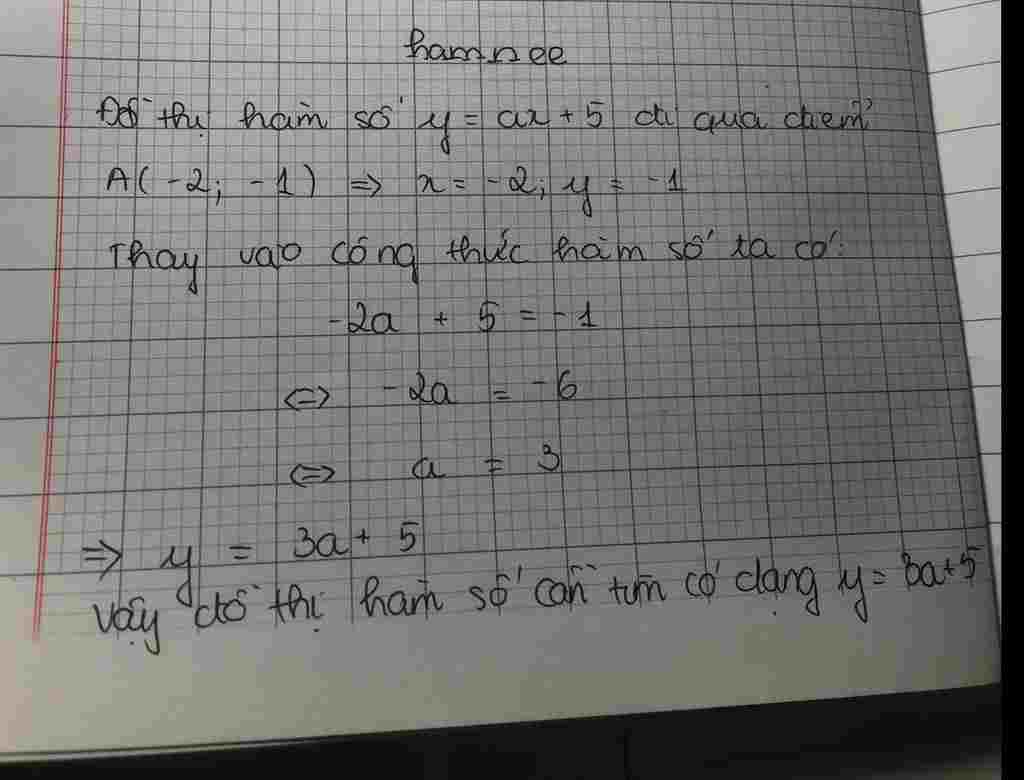 hamnee
Đồ thị hàm số y = ax + 5 đi qua điểm
A( -2; -1 ) => x = -2; y = -1
Thay vào công thức hàm số ta có:
-2a + 5 = -1
<=> -2a = -6
<=> a = 3
=> y = 3a + 5
Vậy đồ thị hàm số cần tìm có dạng y = 3a+5